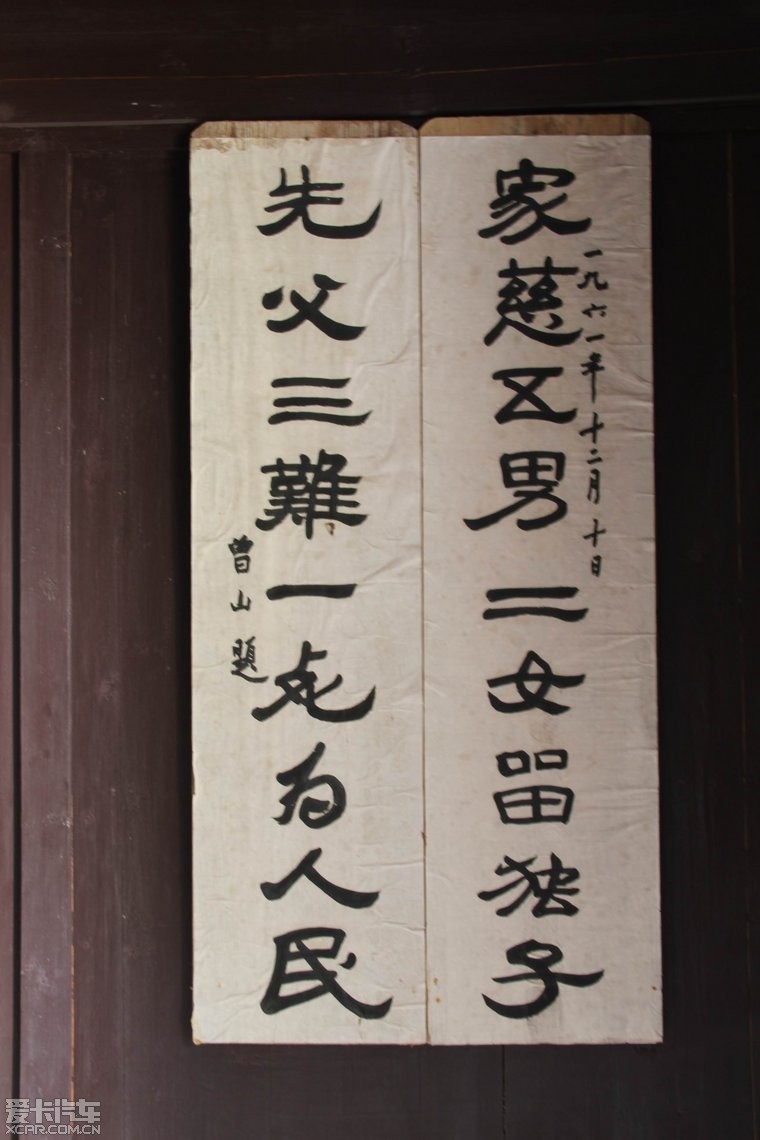 家慈五男二女留独子
一九六一年十二月十日
先父三難一死为人民
曾山題
爱卡汽车
XCAR.COM.CN